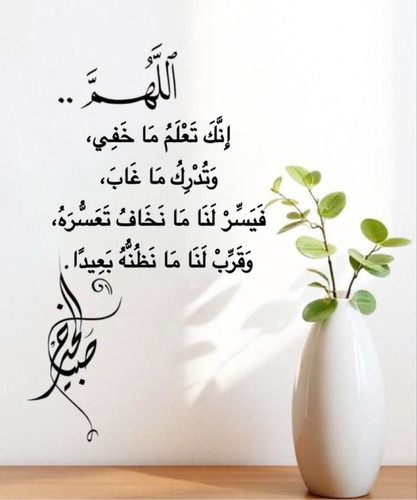 اللَّهُمَّ ..
إِنَّكَ تَعْلَمُ مَا خَفِي،
وَتُدْرِكُ مَا غَابَ،
فَيَسِّرْ لَنَا مَا نَخَافُ تَعَسُّرَهُ،
وَقَرِّبْ لَنَا مَا نَظُنُّهُ بَعِيدًا.
صباح الخير